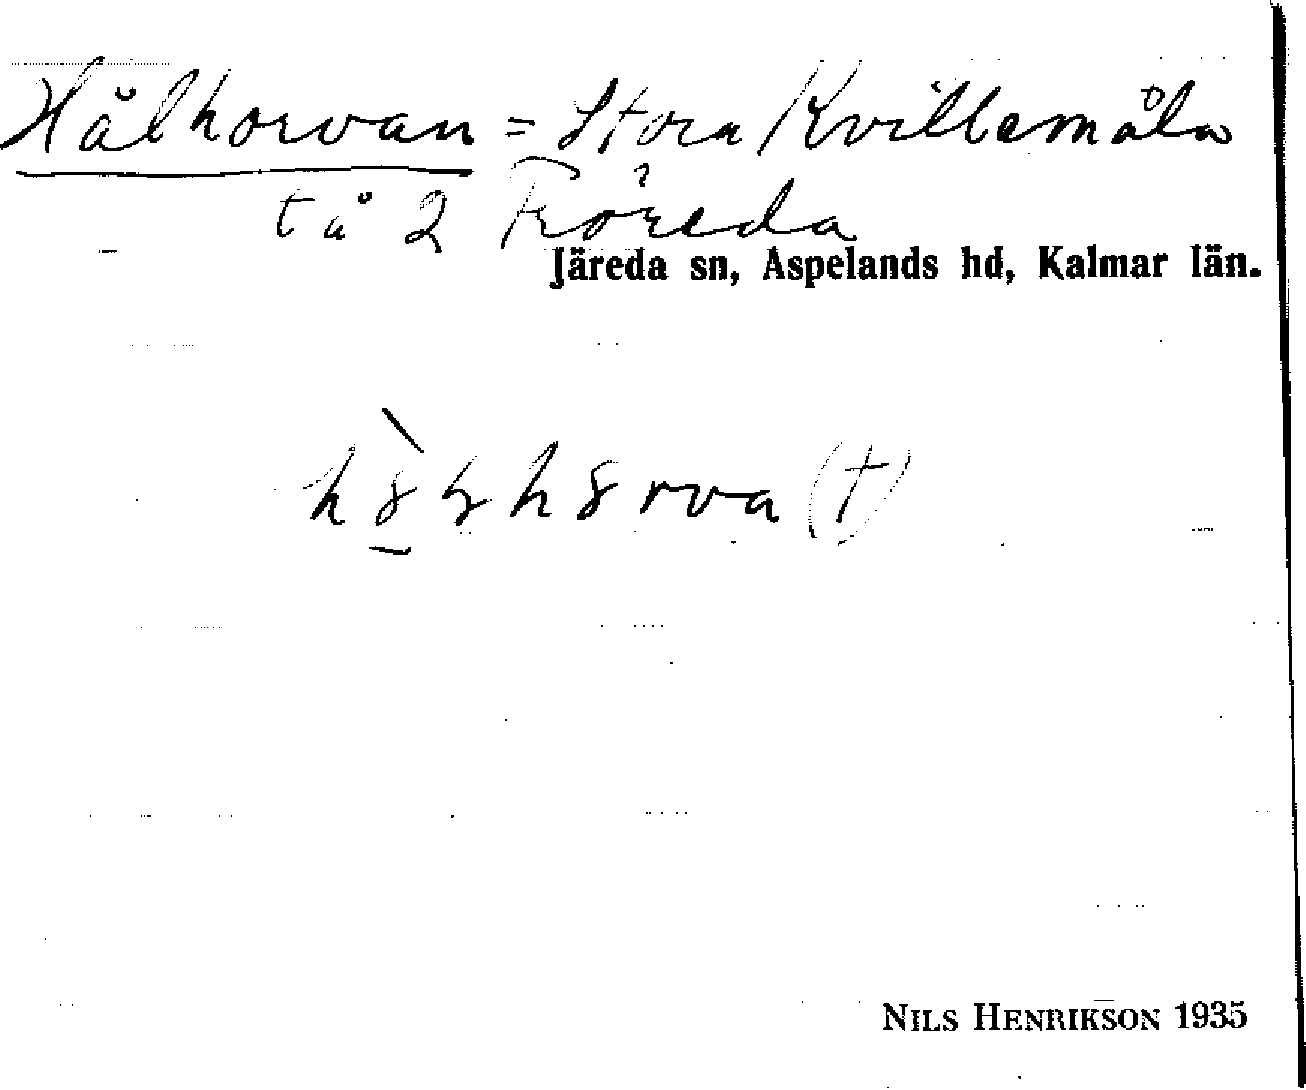 Hålhorvan = Stora Kvillemåla
tå 2 Fröreda
Järeda sn, Aspelands hd, Kalmar län.
NILS HENRIKSON 1935